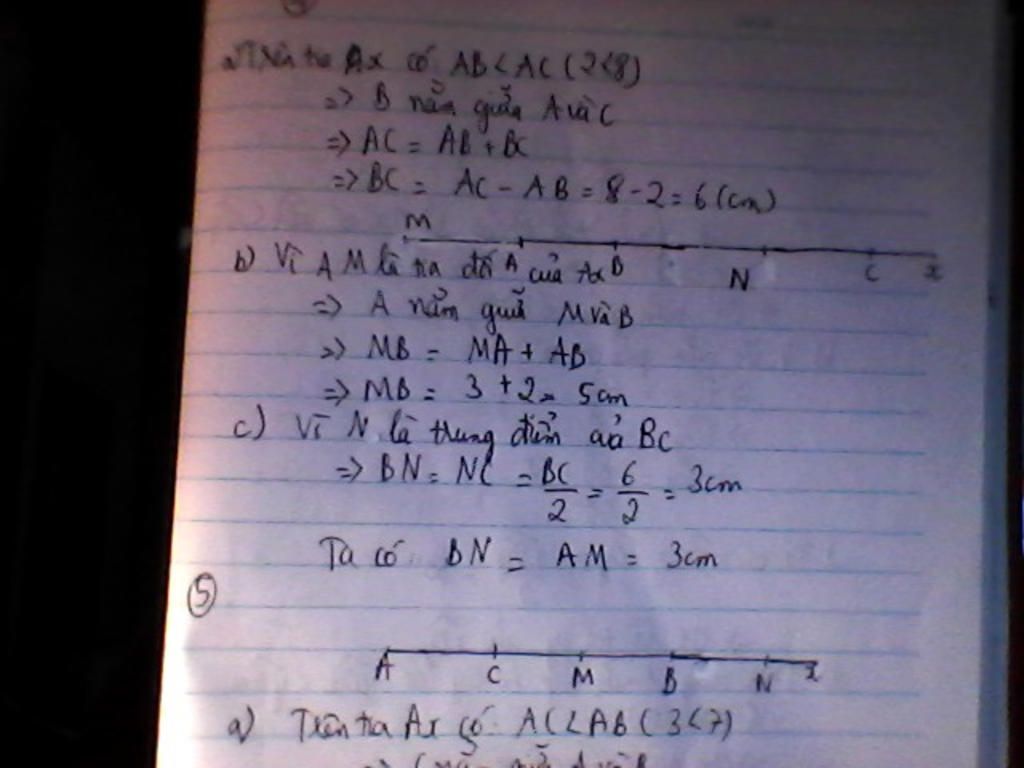 a) Trên tia Ax có AB < AC (2<8)
=> B nằm giữa A và C
=> AC = AB + BC
=> BC = AC - AB = 8 - 2 = 6 (cm)
M A B N C x
b) Vì AM là tia đối của Ax
=> A nằm giữa M và B
=> MB = MA + AB
=> MB = 3 + 2 = 5cm
c) Vì N là trung điểm của BC
=> BN = NC = BC/2 = 6/2 = 3cm
Ta có BN = AM = 3cm
5
A C M B N x
a) Trên tia Ax có AC < AB (3<7)
=> C nằm giữa A và B